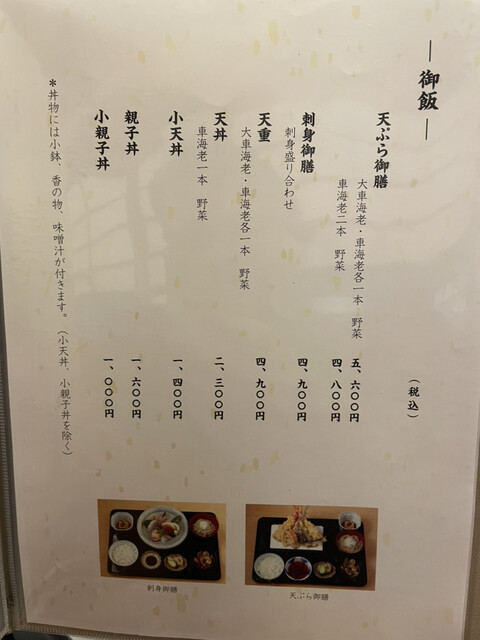 ― 御飯 ―
(税込)
天ぷら御膳
大車海老・車海老各一本 野菜 五、六〇〇円
車海老二本 野菜 四、八〇〇円
刺身御膳 四、九〇〇円
刺身盛り合わせ
天重 四、九〇〇円
大車海老・車海老各一本 野菜
天丼 二、三〇〇円
車海老一本 野菜
小天丼 一、四〇〇円
親子丼 一、六〇〇円
小親子丼 一、〇〇〇円
*丼物には小鉢、香の物、味噌汁が付きます。(小天丼、小親子丼を除く)
刺身御膳
天ぷら御膳